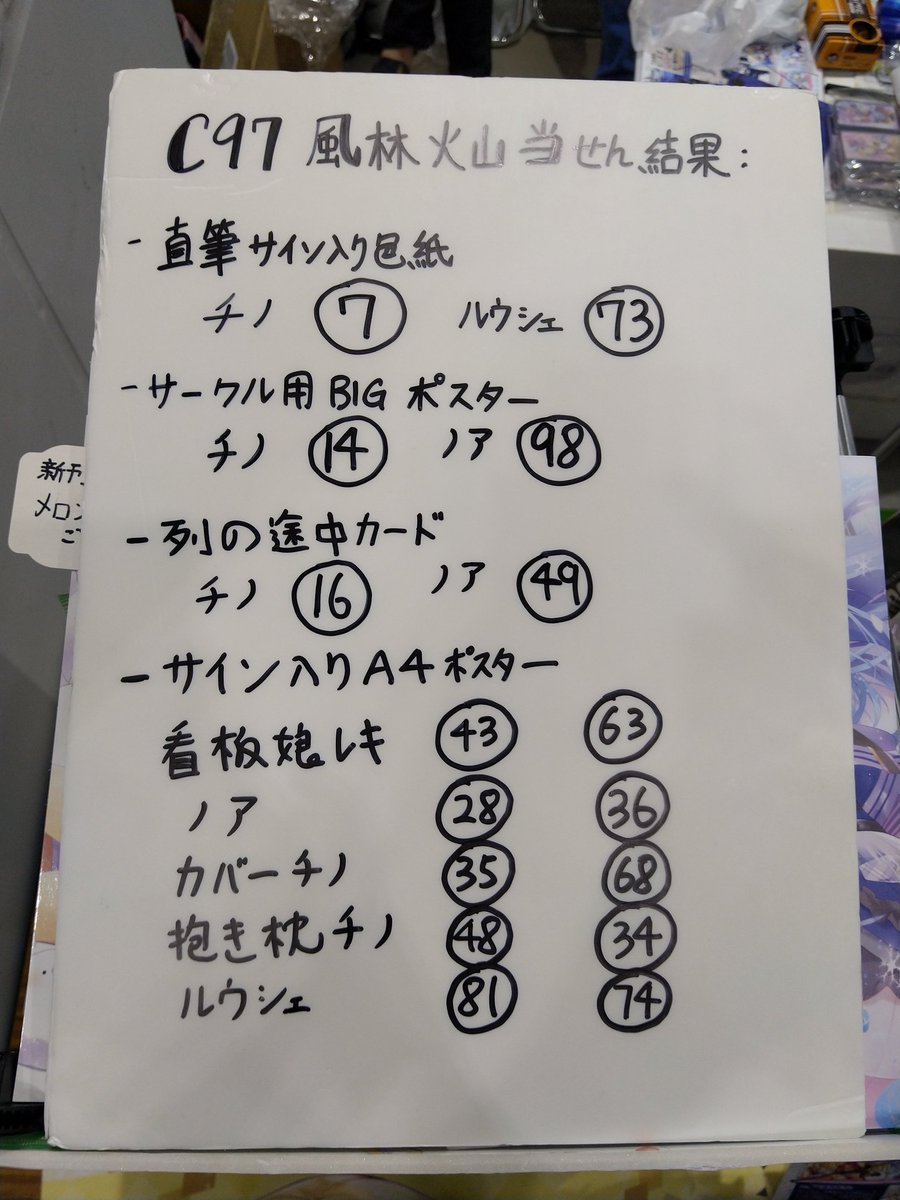 C97 風林火山当せん結果:
- 直筆サイン入り色紙
チノ 7 ルウシェ 73
- サークル用BIG ポスター
チノ 14 ノア 98
- 列の途中カード
チノ 16 ノア 49
- サイン入りA4ポスター
看板娘レキ 43 63
ノア 28 36
カバーチノ 35 68
抱き枕チノ 48 34
ルウシェ 81 74
新刊
メロン